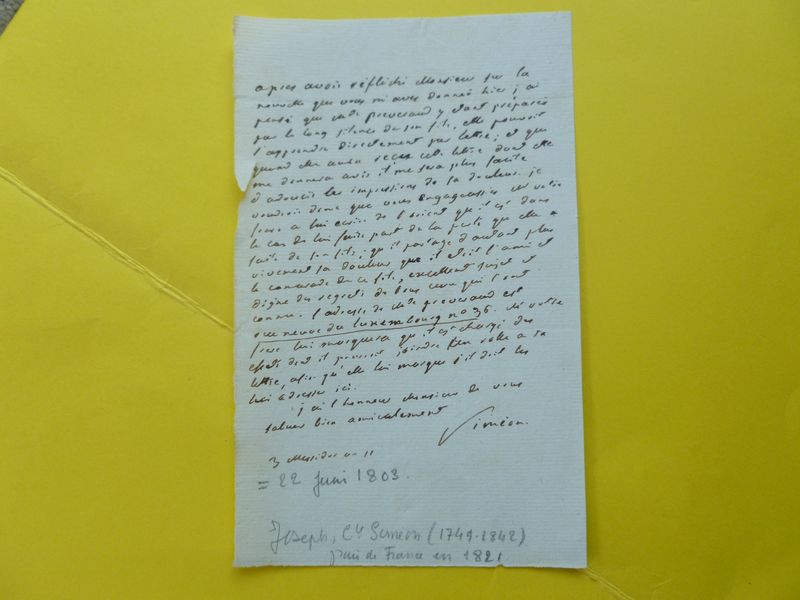 apres avoir réflechi Monsieur sur la
nouvelle que vous m'aves donneé hier, j'ai
pensé que Mde preveraud y etant préparée
par le long silence de son fils, elle pouvoit
l'apprendre directement par lettre; et que
quand elle aura recu cette lettre dont elle
me donnera avis il me sera plus facile
d'adoucir les impressions de la douleur. je
voudrois donc que vous engageassies Mr votre
frere a lui ecrire de l'orient qu'il est dans
le cas de lui faire part de la perte qu'elle a
faite de son fils; qu'il partage d'autant plus
vivement sa douleur que il etoit l'ami et
le camarade de ce fils, excellent sujet et
digne des regrets de tous ceux qui l'ont
connu. l'adresse de Mde preveraud est
rue neuve du luxembourg no 36. Mr votre
frere lui marquera qu'il est chargé des
effets dont il pourroit joindre l'en a sa
lettre, afin qu'elle lui marque s'il doit les
lui adresser ici.
j'ai l'honneur Monsieur de vous
saluer bien amicalement
Siméon.
3 Messidor an 11
= 22 Juni 1803.
Joseph, Cte Siméon (1749-1842)
pair de France en 1821